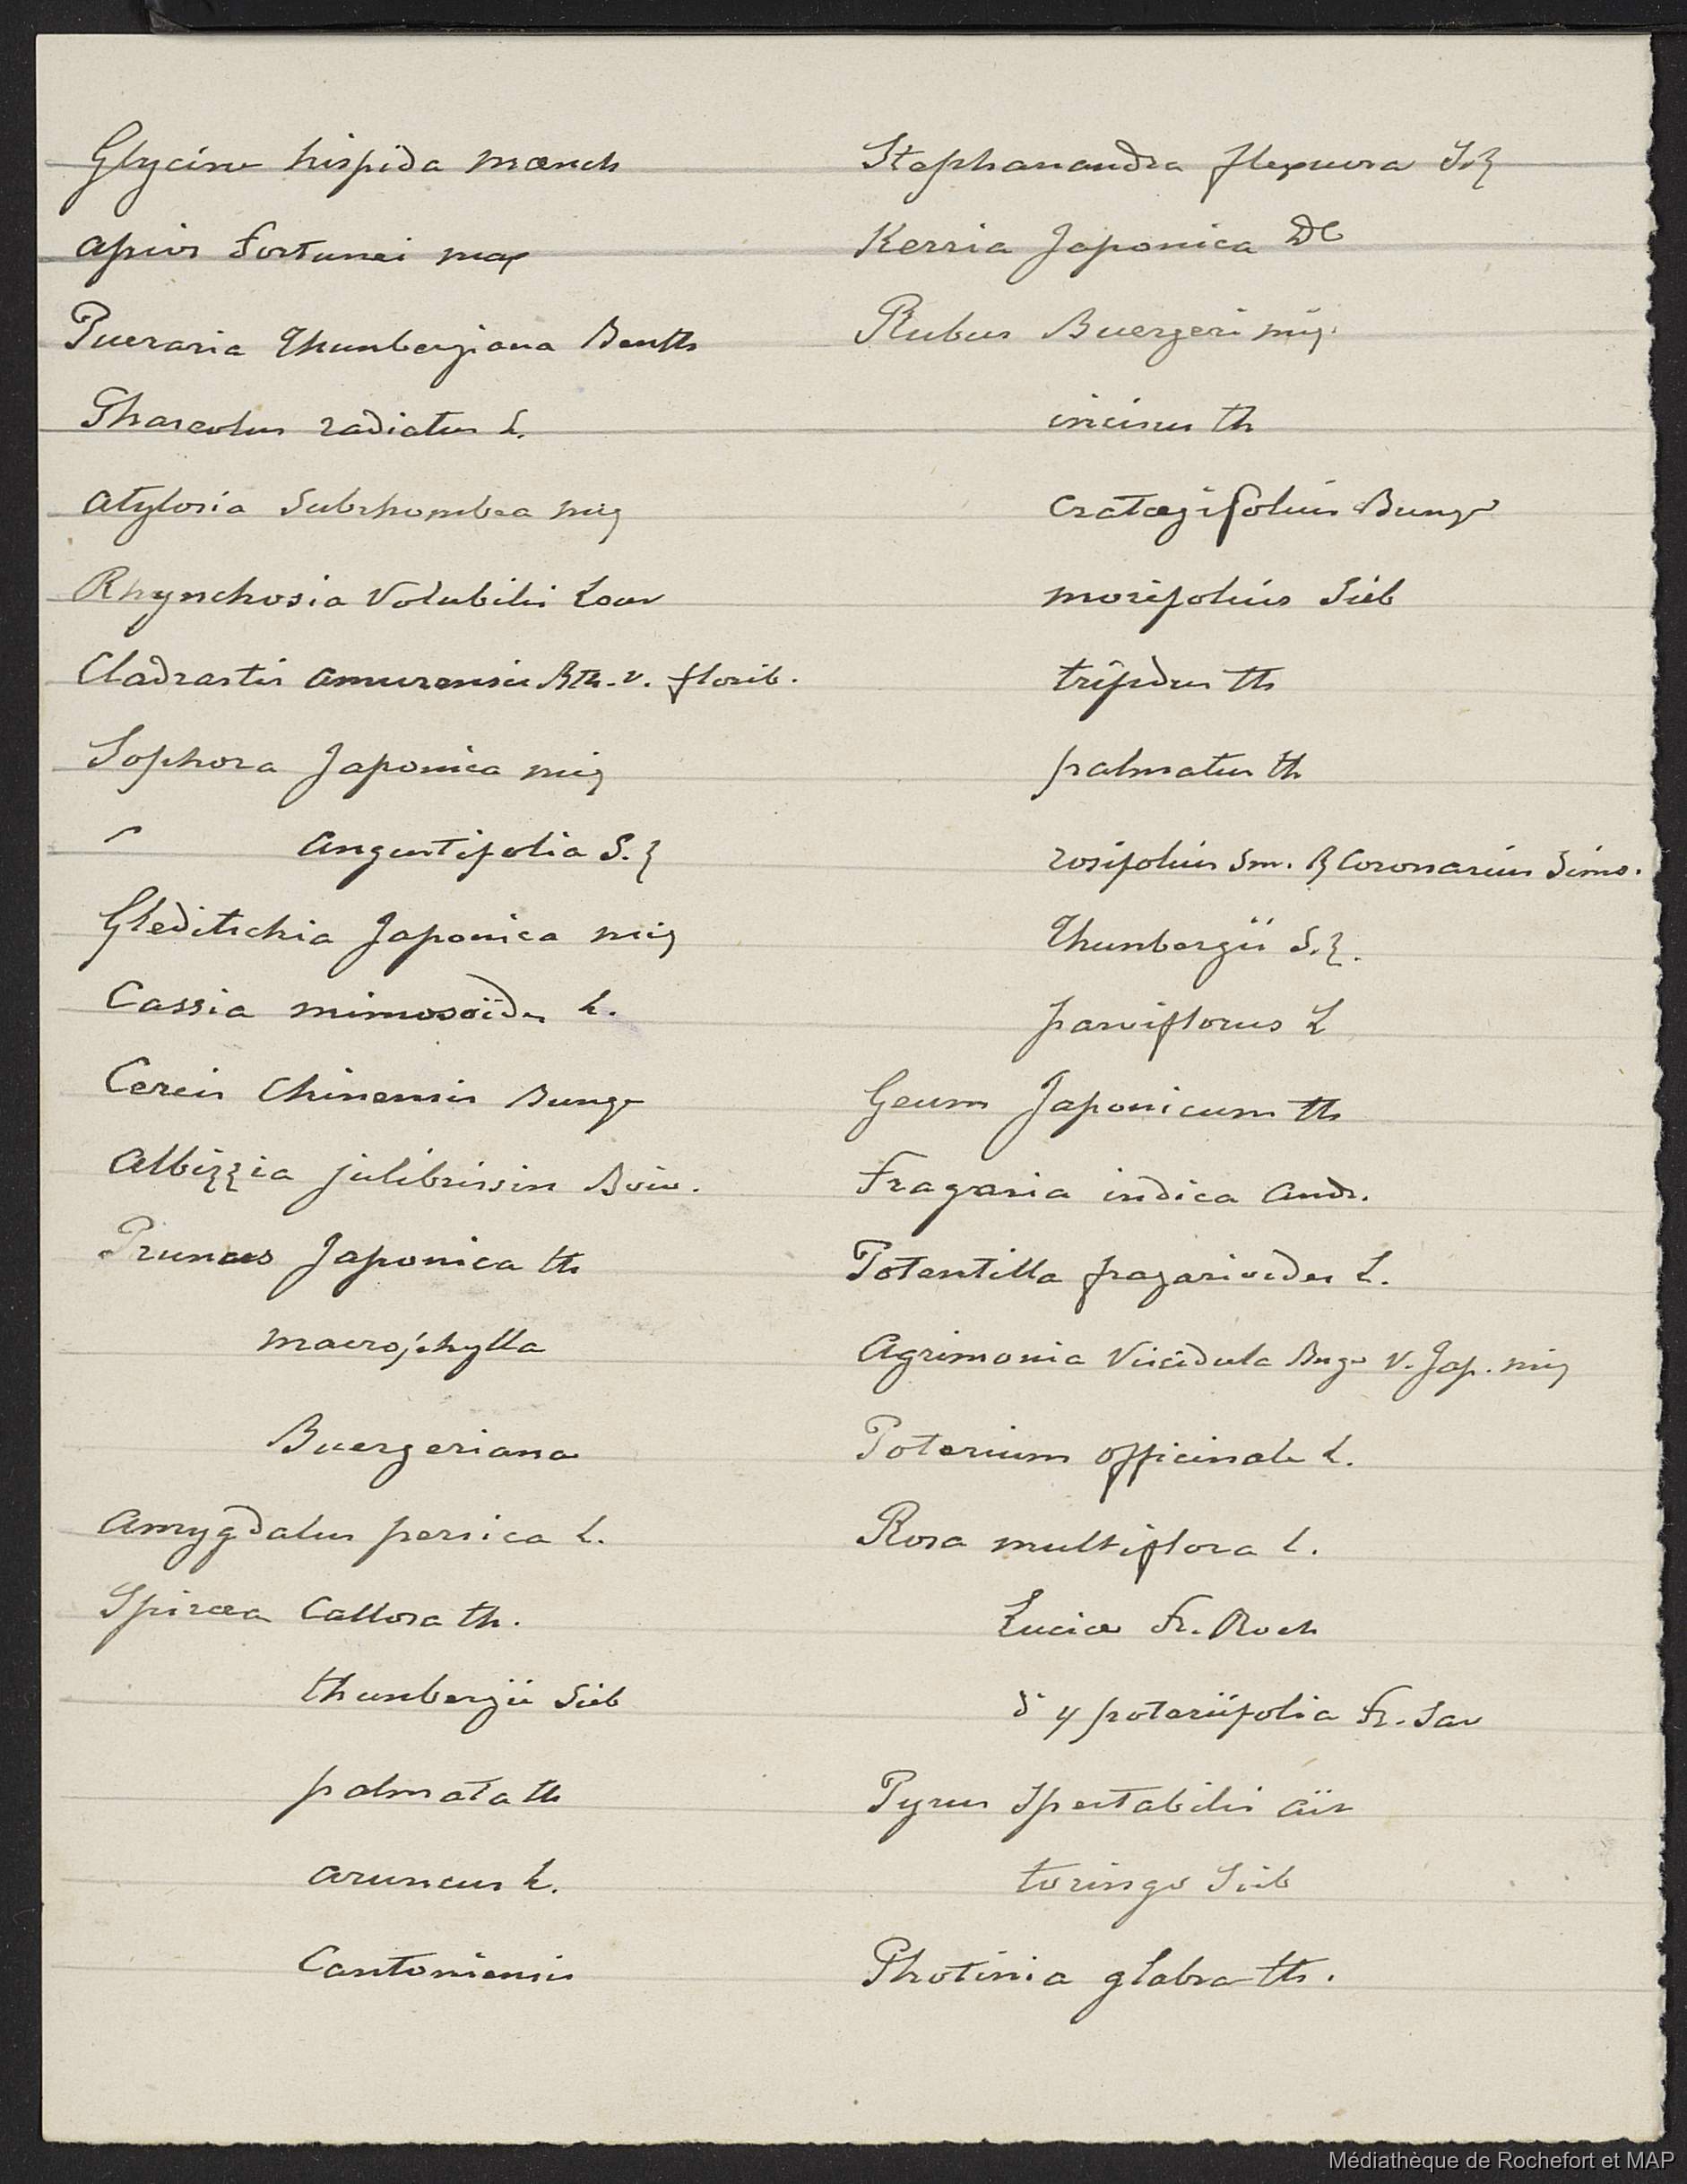 Glycine hispida mœnch
apios fortunei max
Pueraria Thunbergiana Benth
Phaseolus radiatus L.
atylosia Subrhombea miq
Rhynchosia Volubilis Lour
Cladrastis amurensis Bth. v. florib.
Sophora Japonica miq
" angustifolia S.Z
Gleditschia Japonica miq
Cassia mimosoïdes L.
Cercis Chinensis Bunge
Albizzia julibrissin Boiv.
Prunus Japonica th
macrophylla
Buergeriana
amygdalus persica L.
Spiræa Callosa th.
thunbergii Sieb
palmata th
aruncus L.
Cantoniensis
Stephanandra flexuosa S.Z
Kerria Japonica DC
Rubus Buergeri miq.
incisus th
cratægifolius Bunge
morifolius Sieb
trifidus th
palmatus th
rosifolius Sm. B Coronarius Sims.
Thunbergii S.Z.
parviflorus L
Geum Japonicum th
Fragaria indica Andr.
Potentilla fragarioides L.
Agrimonia Viscidula Bnge v. Jap. miq
Poterium officinale L.
Rosa multiflora L.
Luciæ Fr. Roch
d° γ poteriifolia Fr. Sav
Pyrus Spectabilis Ait
toringo Sieb
Photinia glabra th.
Médiathèque de Rochefort et MAP